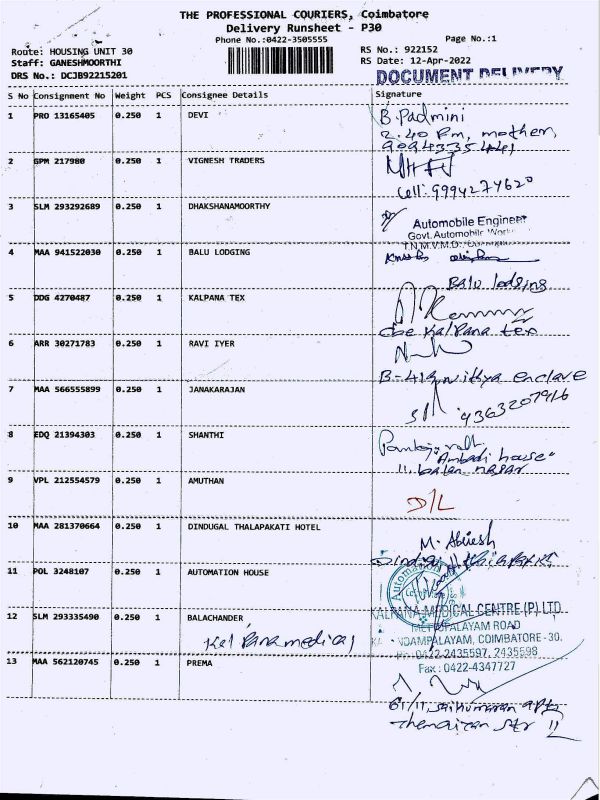 THE PROFESSIONAL COURIERS, Coimbatore
Delivery Runsheet - P30
Phone No.:0422-3505555
Page No.:1
Route: HOUSING UNIT 30
RS No.: 922152
Staff: GANESHMOORTHI
RS Date: 12-Apr-2022
DRS No.: DCJB92215201
DOCUMENT DELIVERY
S No Consignment No Weight PCS Consignee Details Signature
1 PRO 13165405 0.250 1 DEVI B. Padmini
2.40 Pm, mother,
2 GPM 217980 0.250 1 VIGNESH TRADERS
Cell: 9994274620
3 SLM 293292689 0.250 1 DHAKSHANAMOORTHY
Automobile Engineer
Govt. Automobile
4 MAA 941522030 0.250 1 BALU LODGING
Balu lodging
5 DDG 4270487 0.250 1 KALPANA TEX
cbe Kalpana tex
6 ARR 30271783 0.250 1 RAVI IYER
B-419 nithya enclave
7 MAA 566555899 0.250 1 JANAKARAJAN
9363207916
8 EDQ 21394303 0.250 1 SHANTHI
"Ambadi house"
11, balan nagar
9 VPL 212554579 0.250 1 AMUTHAN
D/L
10 MAA 281370664 0.250 1 DINDUGAL THALAPAKATI HOTEL
M. Abiesh
11 POL 3248107 0.250 1 AUTOMATION HOUSE
Automation
12 SLM 293335490 0.250 1 BALACHANDER,
Kalpana medical
KALPANA MEDICAL CENTRE (P) LTD.
METTUPALAYAM ROAD
COIMBATORE - 30.
0422-2435597, 2435598
Fax : 0422-4347727
13 MAA 562120745 0.250 1 PREMA